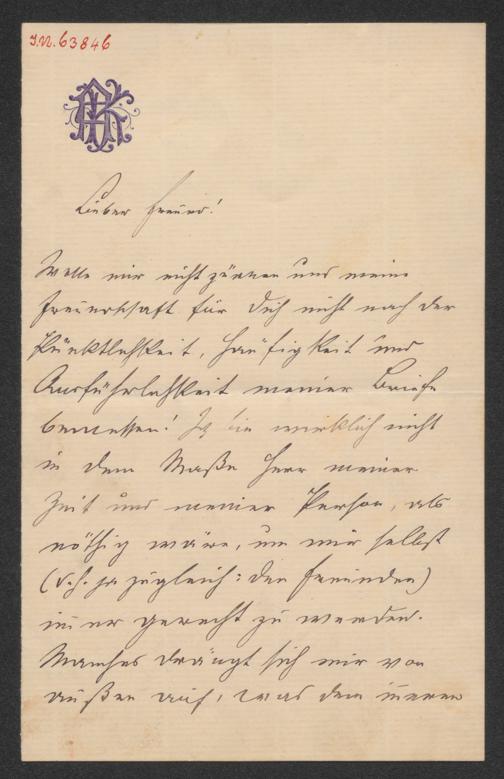 J.N. 63846
Lieber Freund!
Wolle mir nicht zürnen und meine
Freundschaft für Dich nicht nach der
Pünktlichkeit, Häufigkeit und
Ausführlichkeit meiner Briefe
bemessen! Ich bin wirklich nicht
in dem Maße Herr meiner
Zeit und meiner Person, als
nöthig wäre, um mir selbst
(d.h. ja zugleich: den Freunden)
immer gerecht zu werden.
Manches drängt sich mir von
außen auf, was dem inneren